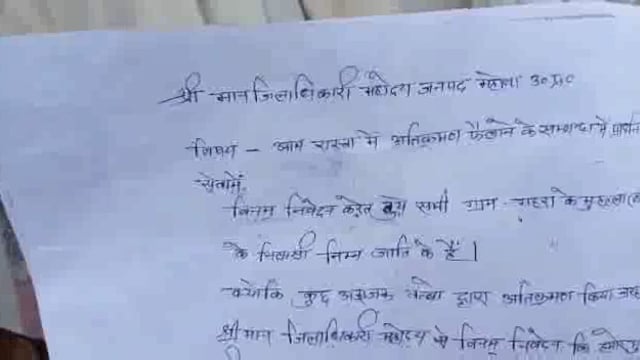 श्री मान जिलाधिकारी महोदय जनपद महोबा उ०प्र०
विषय - आम रास्ता में अतिक्रमण फैलाने के सम्बन्ध में
सेवामें,
विनम्र निवेदन है हम सभी ग्राम के
के निवासी निम्न जाति के हैं।
क्योंकि कुछ अराजक तत्वो द्वारा अतिक्रमण किया
श्री मान जिलाधिकारी महोदय से विनम्र निवेदन कि